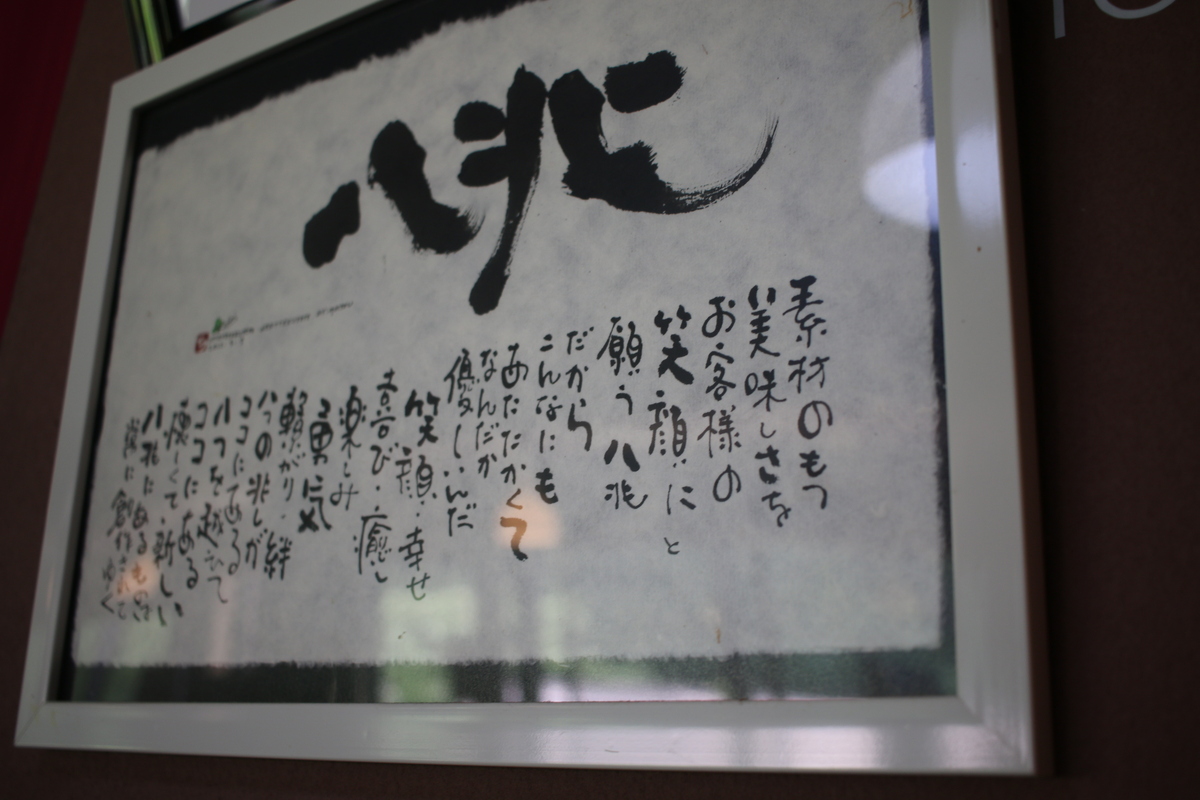 八兆
素材のもつ
美味しさを
お客様の
笑顔にと
願う八兆
だから
こんなにも
あたたかくて
なんだか
優しいんだ
笑顔・幸せ
喜び・癒し
楽しみ
勇気
繋がり・絆
八つの兆しが
ココにある
八つを越えて
ココにある
懐しくて・新しい
八兆にあるものは
常に創作されてゆく